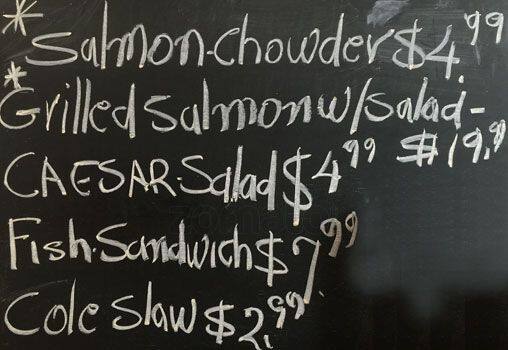 * Salmon-Chowder $4.99
* Grilled Salmon w/ Salad - $19.99
CAESAR-Salad $4.99
Fish-Sandwich $7.99
Cole Slaw $2.99